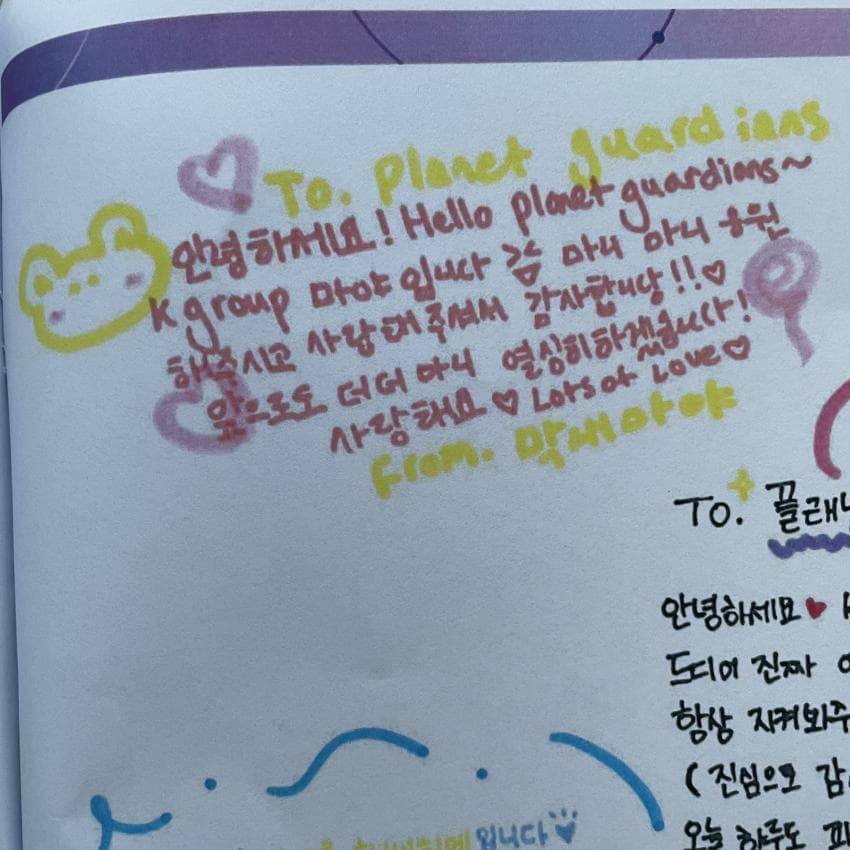 To. Planet guardians
안녕하세요! Hello planet guardians~
K group 마야 입니다 마니 마니 응원
해주시고 사랑해주셔서 감사합니당!!♡
앞으로도 더더 마니 열심히하겠습니다!
사랑해요♡ Lots of Love♡
From. 막내마야
To.
안녕하세요♥
드디어 진짜
항상 지켜봐주
(진심으로 감
오늘 하루도
입니다